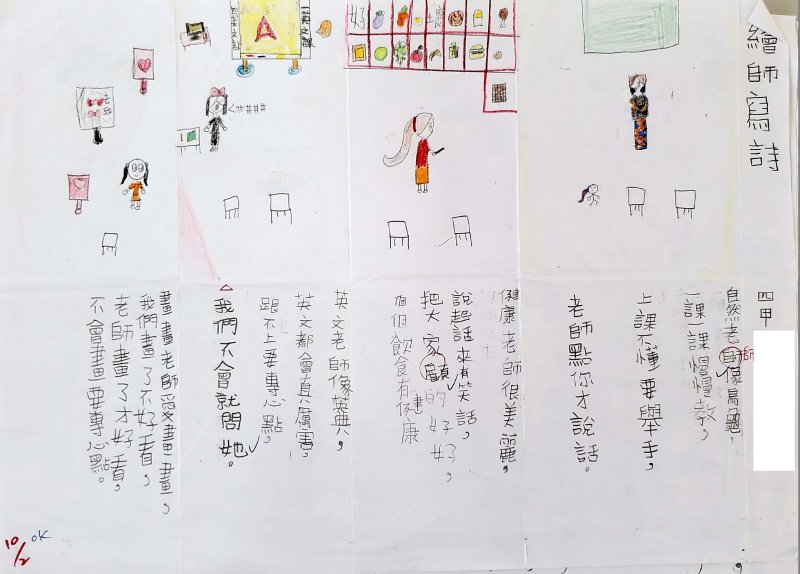 繪師寫詩
四甲
自然老師像烏龜，
一課一課慢慢教，
上課不懂要舉手，
老師點你才說話。
健康老師很美麗，
說起話來有笑話，
把大家顧的好好，
個個飲食有健康
英文老師像英典，
英文都會真厲害，
跟不上要專心點，
我們不會就問她。
畫畫老師愛畫畫，
我們畫了不好看，
老師畫了才好看，
不會畫要專心點。
10/2 OK